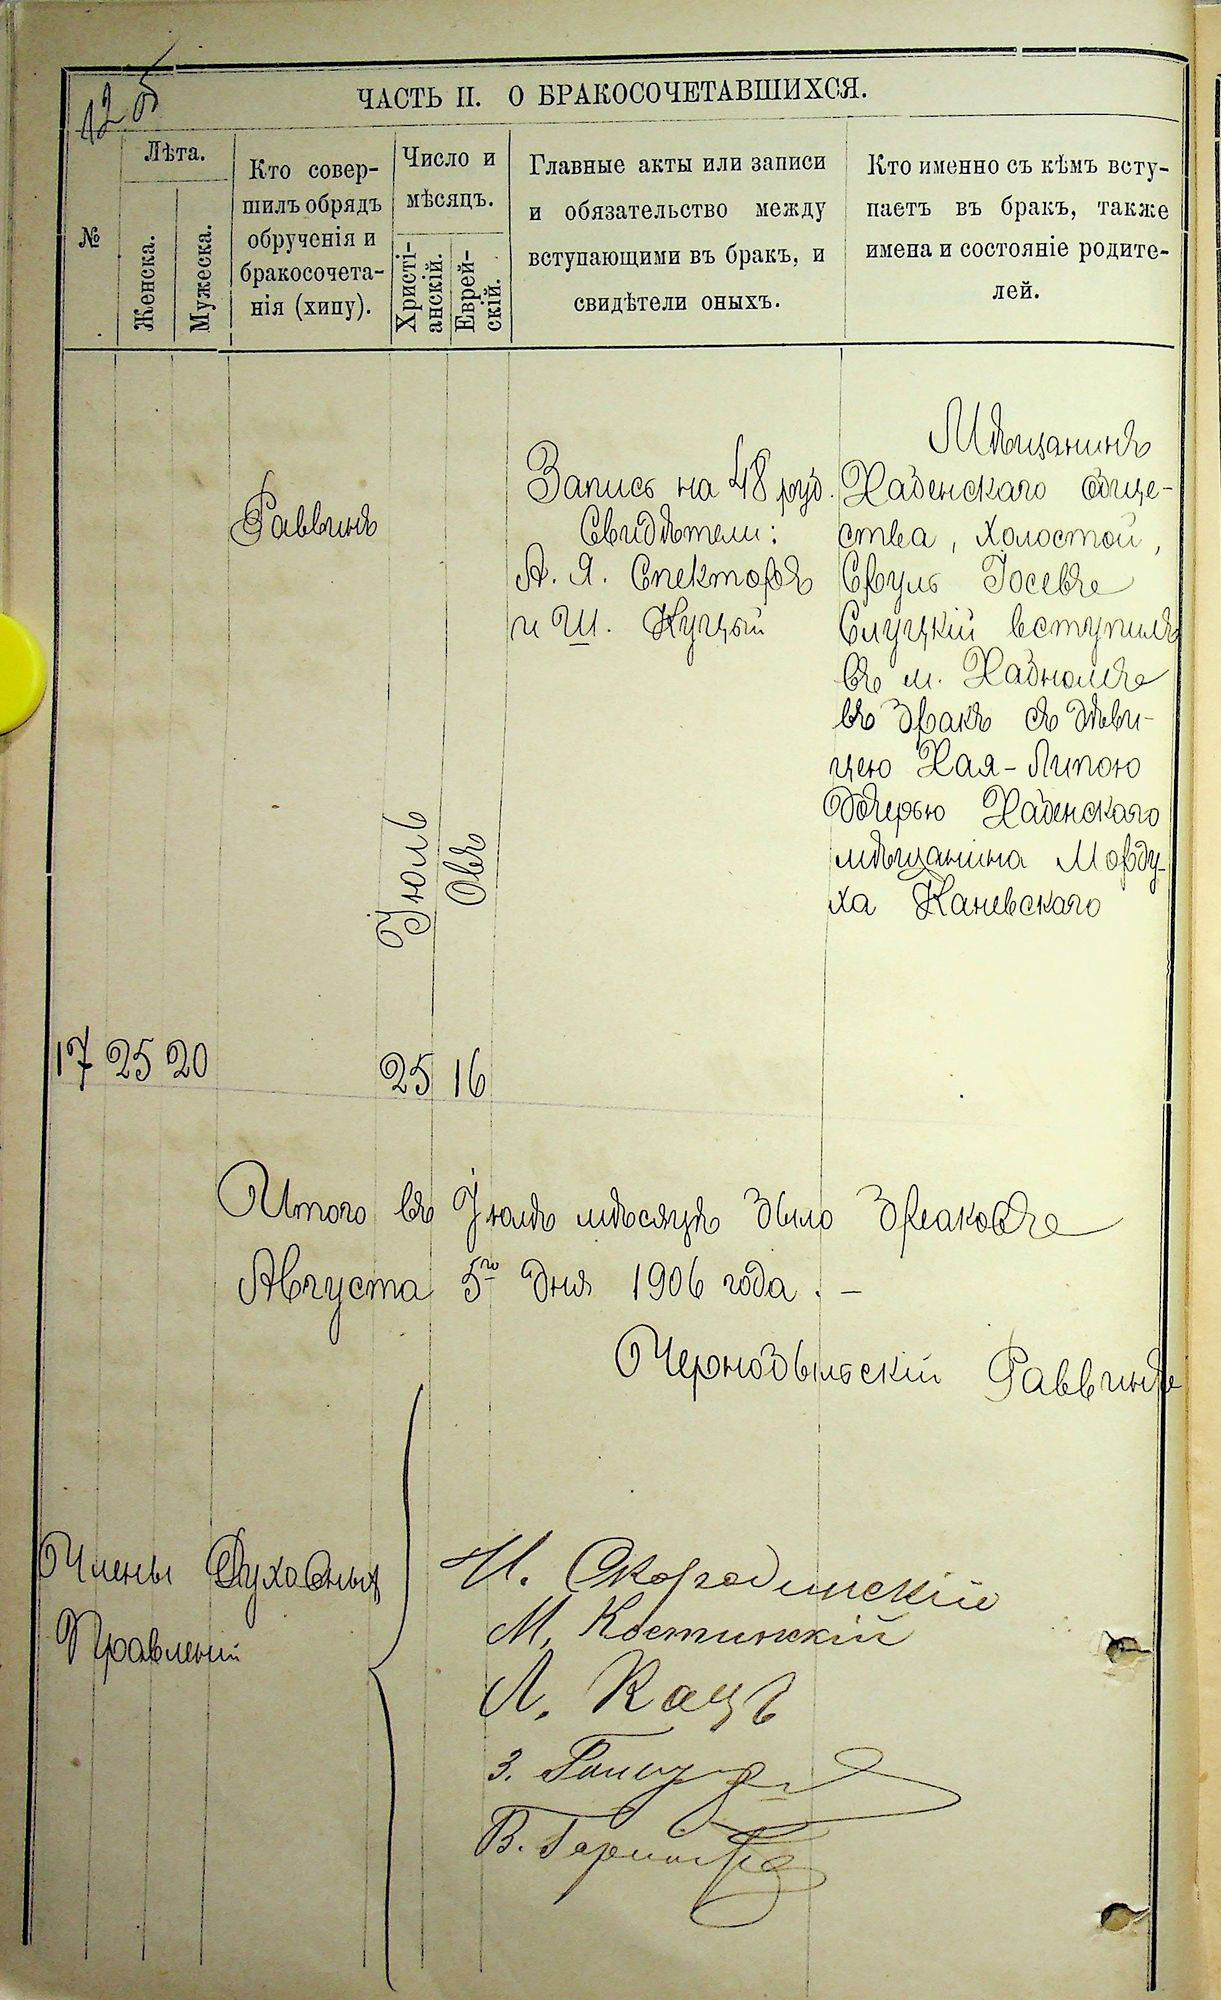 ЧАСТЬ II. О БРАКОСОЧЕТАВШИХСЯ.
№
Лѣта.
Женска.
Мужеска.
Кто совер-
шилъ обрядъ
обрученія и
бракосочета-
нія (хипу).
Число и
мѣсяцъ.
Христі-
анскій.
Еврей-
скій.
Главные акты или записи
и обязательство между
вступающими въ бракъ, и
свидѣтели оныхъ.
Кто именно съ кѣмъ всту-
паетъ въ бракъ, также
имена и состояніе родите-
лей.
17 25 20
Раввинъ
Іюль
25
Овъ
16
Запись на 48 руб.
Свидѣтели:
А. Я. Спекторъ
и Ш. Куцый
Мѣщанинъ
Хабенскаго обще-
ства, холостой,
Сруль Іосевъ
Слуцкій вступилъ
въ м. Хабномъ
въ бракъ съ дѣви-
цею Хая-Липою
дочерью Хабенскаго
мѣщанина Морду-
ха Каневскаго
Итого въ Іюлѣ мѣсяцѣ было браковъ
Августа 5го дня 1906 года. –
Чернобыльскій Раввинъ
Члены Духовныхъ
Правленій
И. Скородинскій
М. Костинскій
Л. Кацъ
З.
В.